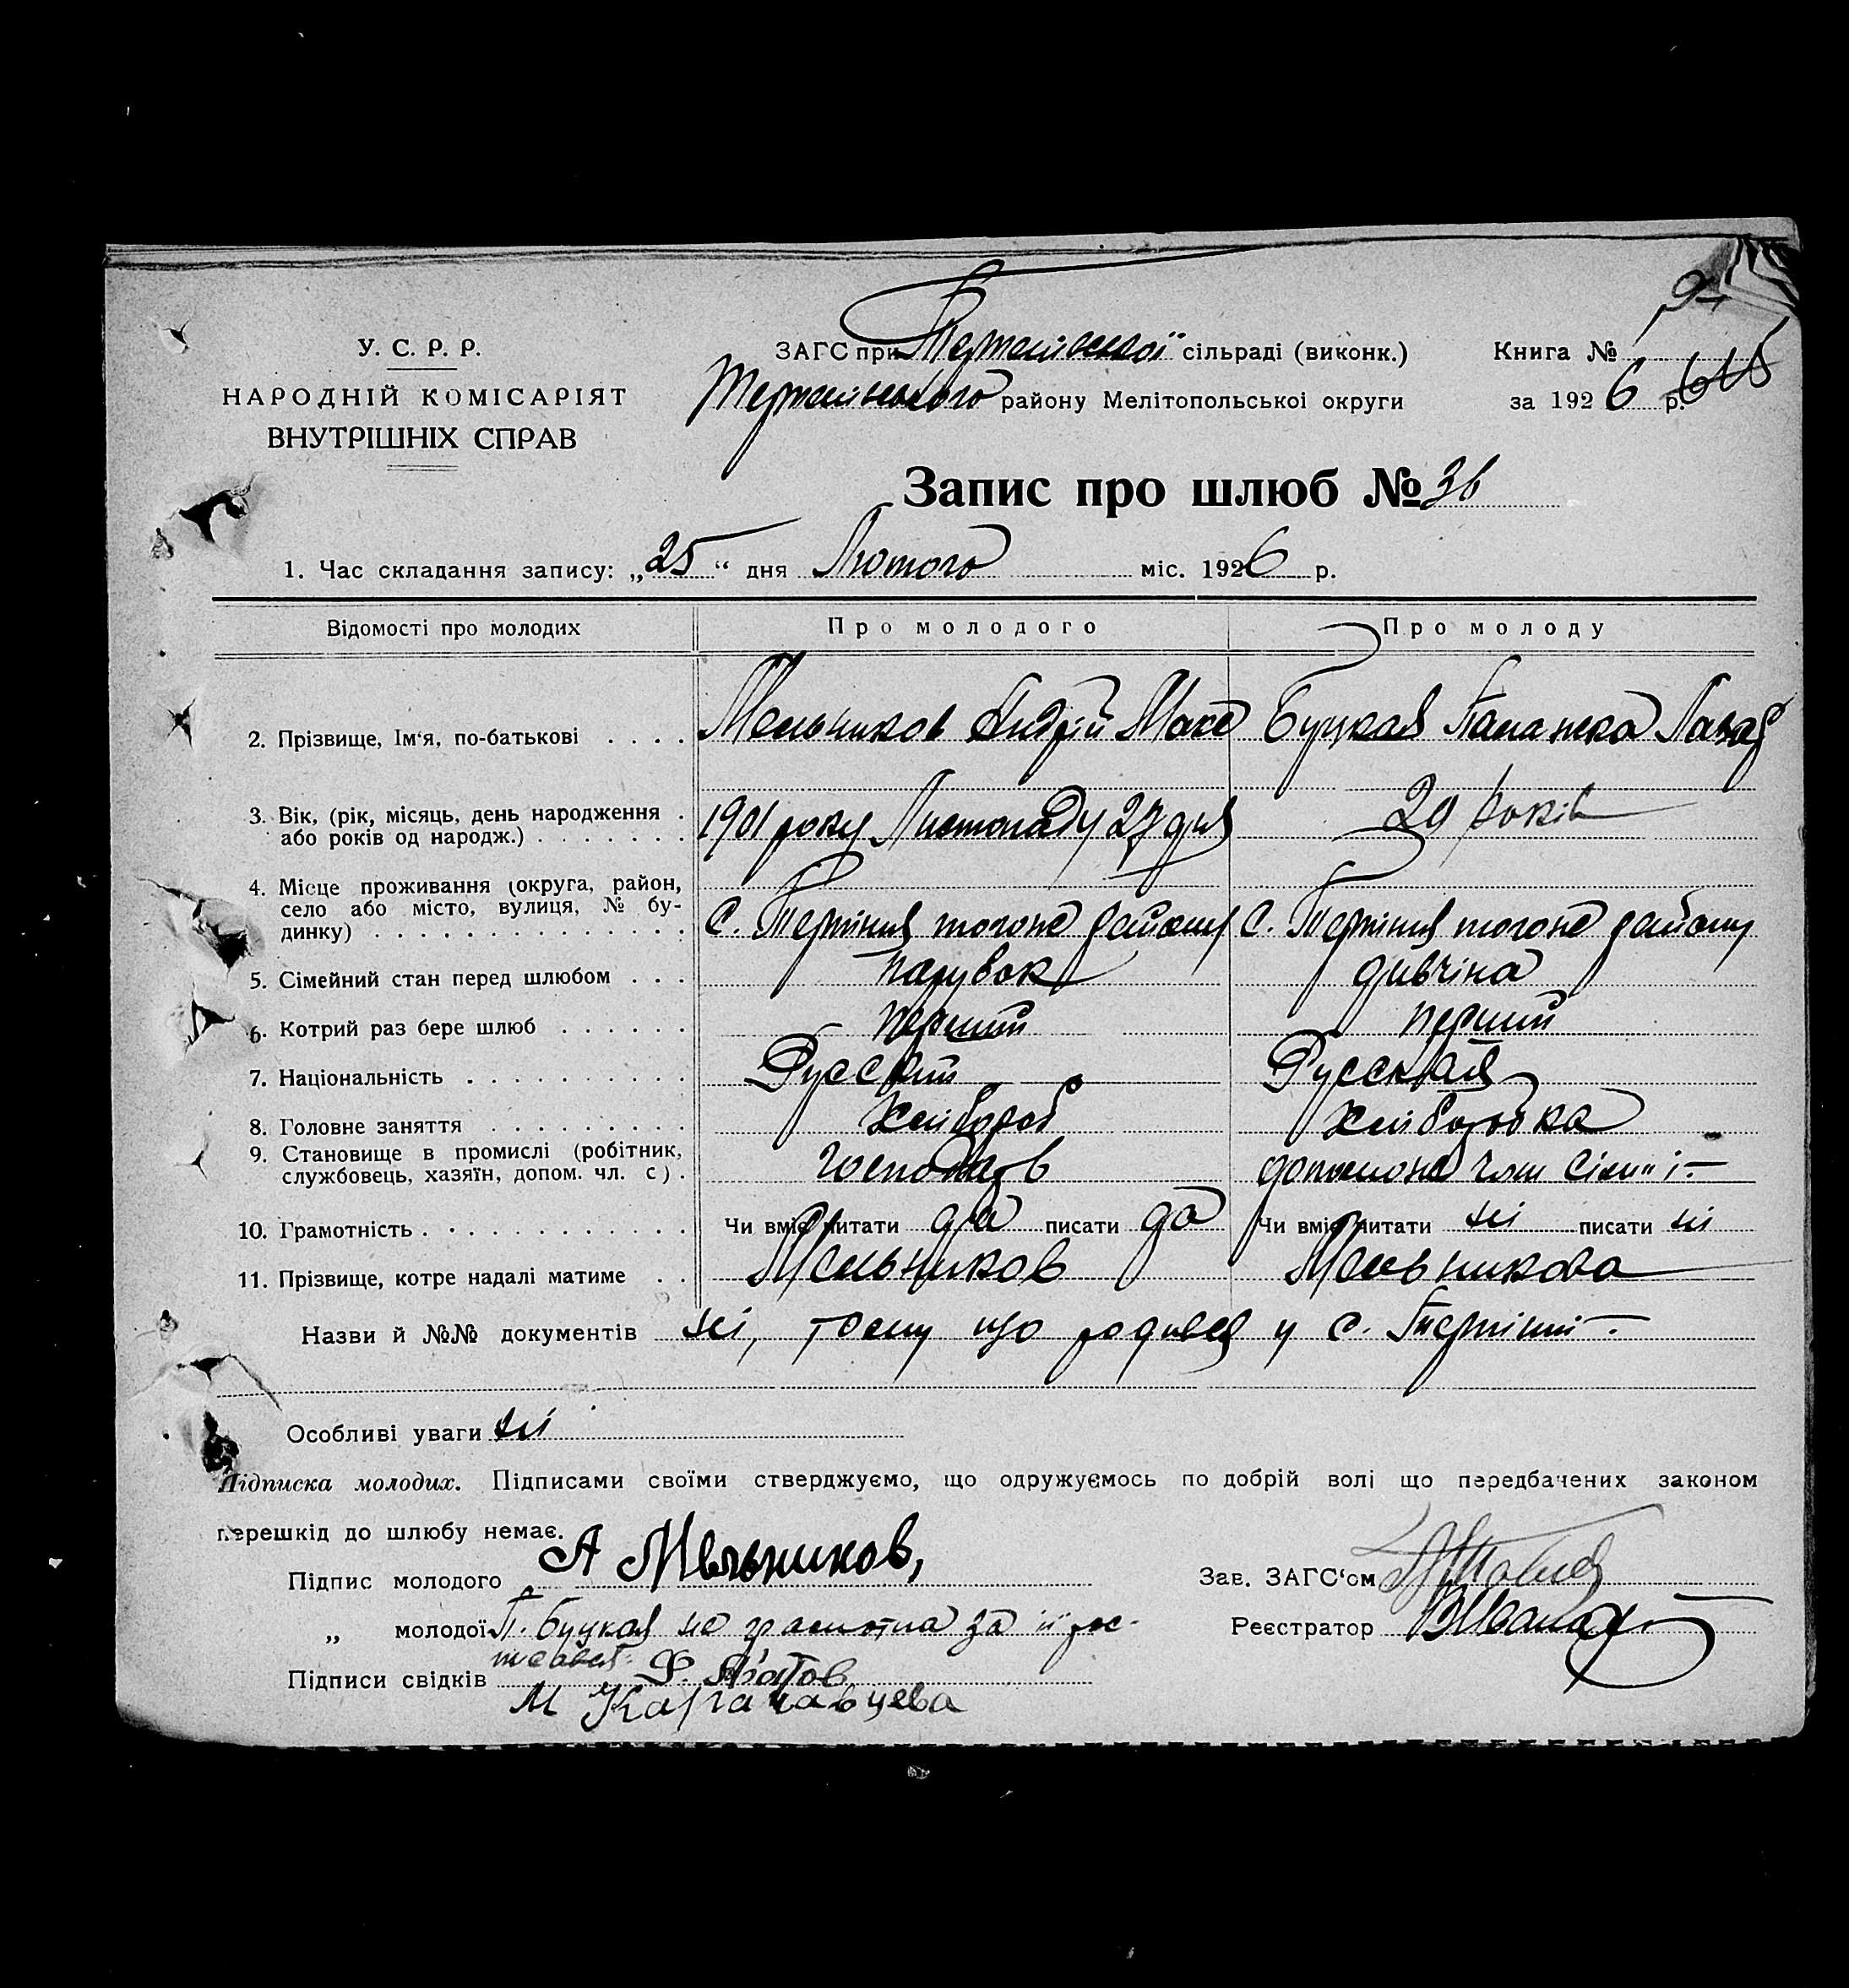 У. С. Р. Р.
НАРОДНІЙ КОМІСАРІЯТ
ВНУТРІШНІХ СПРАВ
ЗАГС при Терпінівскої сільраді (виконк.)
Терпінівського району Мелітопольськоі округи
Книга №
за 1926 р.
Запис про шлюб № 36
1. Час складання запису: „25“ дня Лютого міс. 1926 р.
Відомості про молодих Про молодого Про молоду
2. Прізвище, Ім'я, по-батькові . . . . Мельников Андрій Макс Буцкая Паланжка Лазар
3. Вік, (рік, місяць, день народження . 1901 року Листопаду 27 дня 20 років
або років од народж.) . . . . . . .
4. Місце проживання (округа, район,
село або місто, вулиця, № бу-
динку) . . . . . . . . . . . . . . С. Терпіння тогоже району С. Терпіння тогоже району
5. Сімейний стан перед шлюбом . . . парубок дивчіна
6. Котрий раз бере шлюб . . . . . . перший перший
7. Національність . . . . . . . . . . Русский Русская
8. Головне заняття . . . . . . . . . Хлибороб Хлиборобка
9. Становище в промислі (робітник,
службовець, хазяїн, допом. чл. с) . господарь допоможе член сімиі
10. Грамотність . . . . . . . . . . . . Чи вміє читати да писати да Чи вміє читати ні писати ні
11. Прізвище, котре надалі матиме . . Мельников Мельникова
Назви й №№ документів ні, тому що родився у с. Терпінні
Особливі уваги ні
Підписка молодих. Підписами своїми стверджуємо, що одружуємось по добрій волі що передбачених законом
перешкід до шлюбу немає.
Підпис молодого А Мельников,
Зав. ЗАГС'ом
„ молодої П. Буцкая не грамотна за її рос-
Реєстратор
Підписи свідків